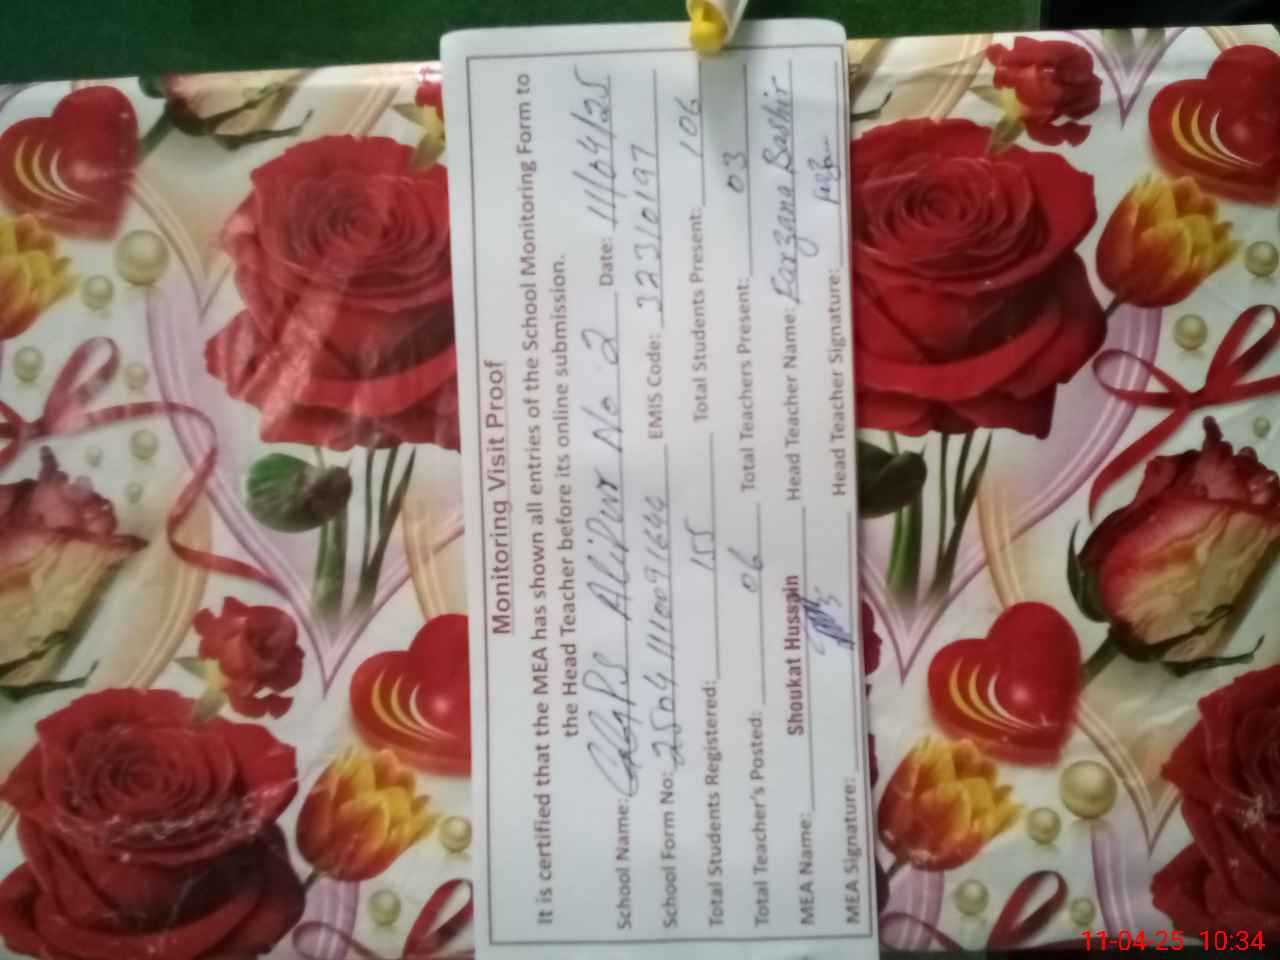 Monitoring Visit Proof
It is certified that the MEA has shown all entries of the School Monitoring Form to
the Head Teacher before its online submission.
School Name: GGPS AliPur No 2 Date: 11/04/25
School Form No: 25041110091644 EMIS Code: 32310197
Total Students Registered: 155 Total Students Present: 106
Total Teacher's Posted: 06 Total Teachers Present: 03
MEA Name: Shoukat Hussain Head Teacher Name: Farzana Bashir
MEA Signature: Head Teacher Signature:
11-04-25 10:34